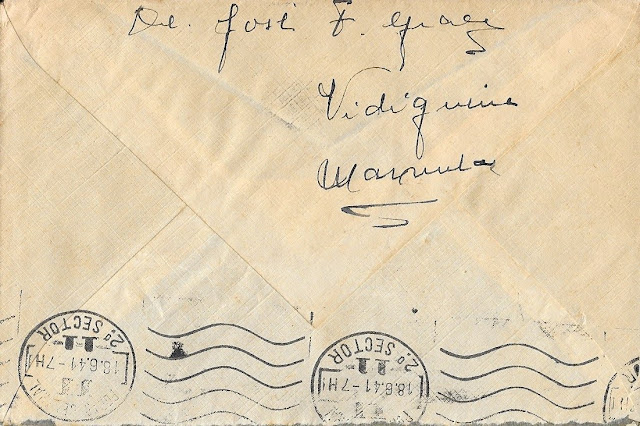 De. José F. Graça
Vidigueira
2º SECTOR
18.6.41-7H
2º SECTOR
18.6.41-7H